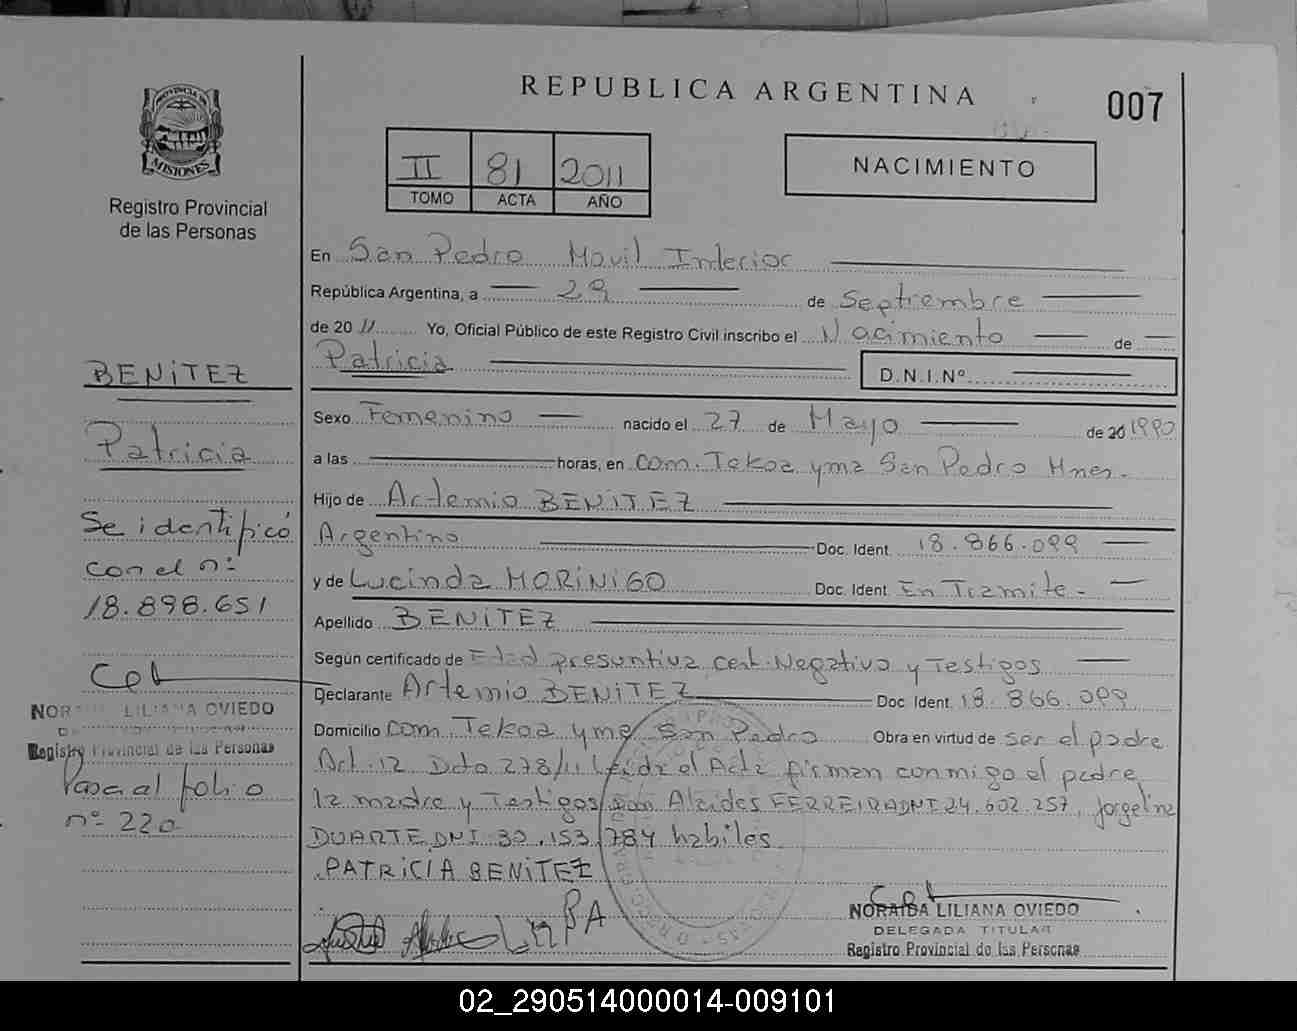 REPUBLICA ARGENTINA
007
PROVINCIA DE
MISIONES
Registro Provincial
de las Personas
II 81 2011
TOMO ACTA AÑO
NACIMIENTO
En San Pedro Movil Interior
República Argentina, a 29 de Septiembre
de 20 11 Yo, Oficial Público de este Registro Civil inscribo el Nacimiento de
Patricia D.N.I.Nº
Sexo Femenino nacido el 27 de Mayo de 20 1990
a las horas, en Com. Tekoa yma San Pedro Mnes.
Hijo de Artemio BENITEZ
Argentino Doc. Ident. 18.866.099
y de Lucinda MORINIGO Doc. Ident. En Tramite.
Apellido BENITEZ
Según certificado de Edad presuntiva cert. Negativo y Testigos
Declarante Artemio BENITEZ Doc. Ident. 18.866.099
Domicilio Com. Tekoa yma San Pedro Obra en virtud de ser el padre
Art. 12 Dcto 278/11 Leida el Acta firman conmigo el padre
la madre y Testigos son Alcides FERREIRA DNI 24.602.257, Jorgelina
DUARTE DNI 30.153.784 habiles
PATRICIA BENITEZ
NORAIDA LILIANA OVIEDO
DELEGADA TITULAR
Registro Provincial de las Personas
BENITEZ
Patricia
Se identificó
con el nº
18.898.651
NORAIDA LILIANA OVIEDO
Registro Provincial de las Personas
Pasa al folio
nº 220
02_290514000014-009101